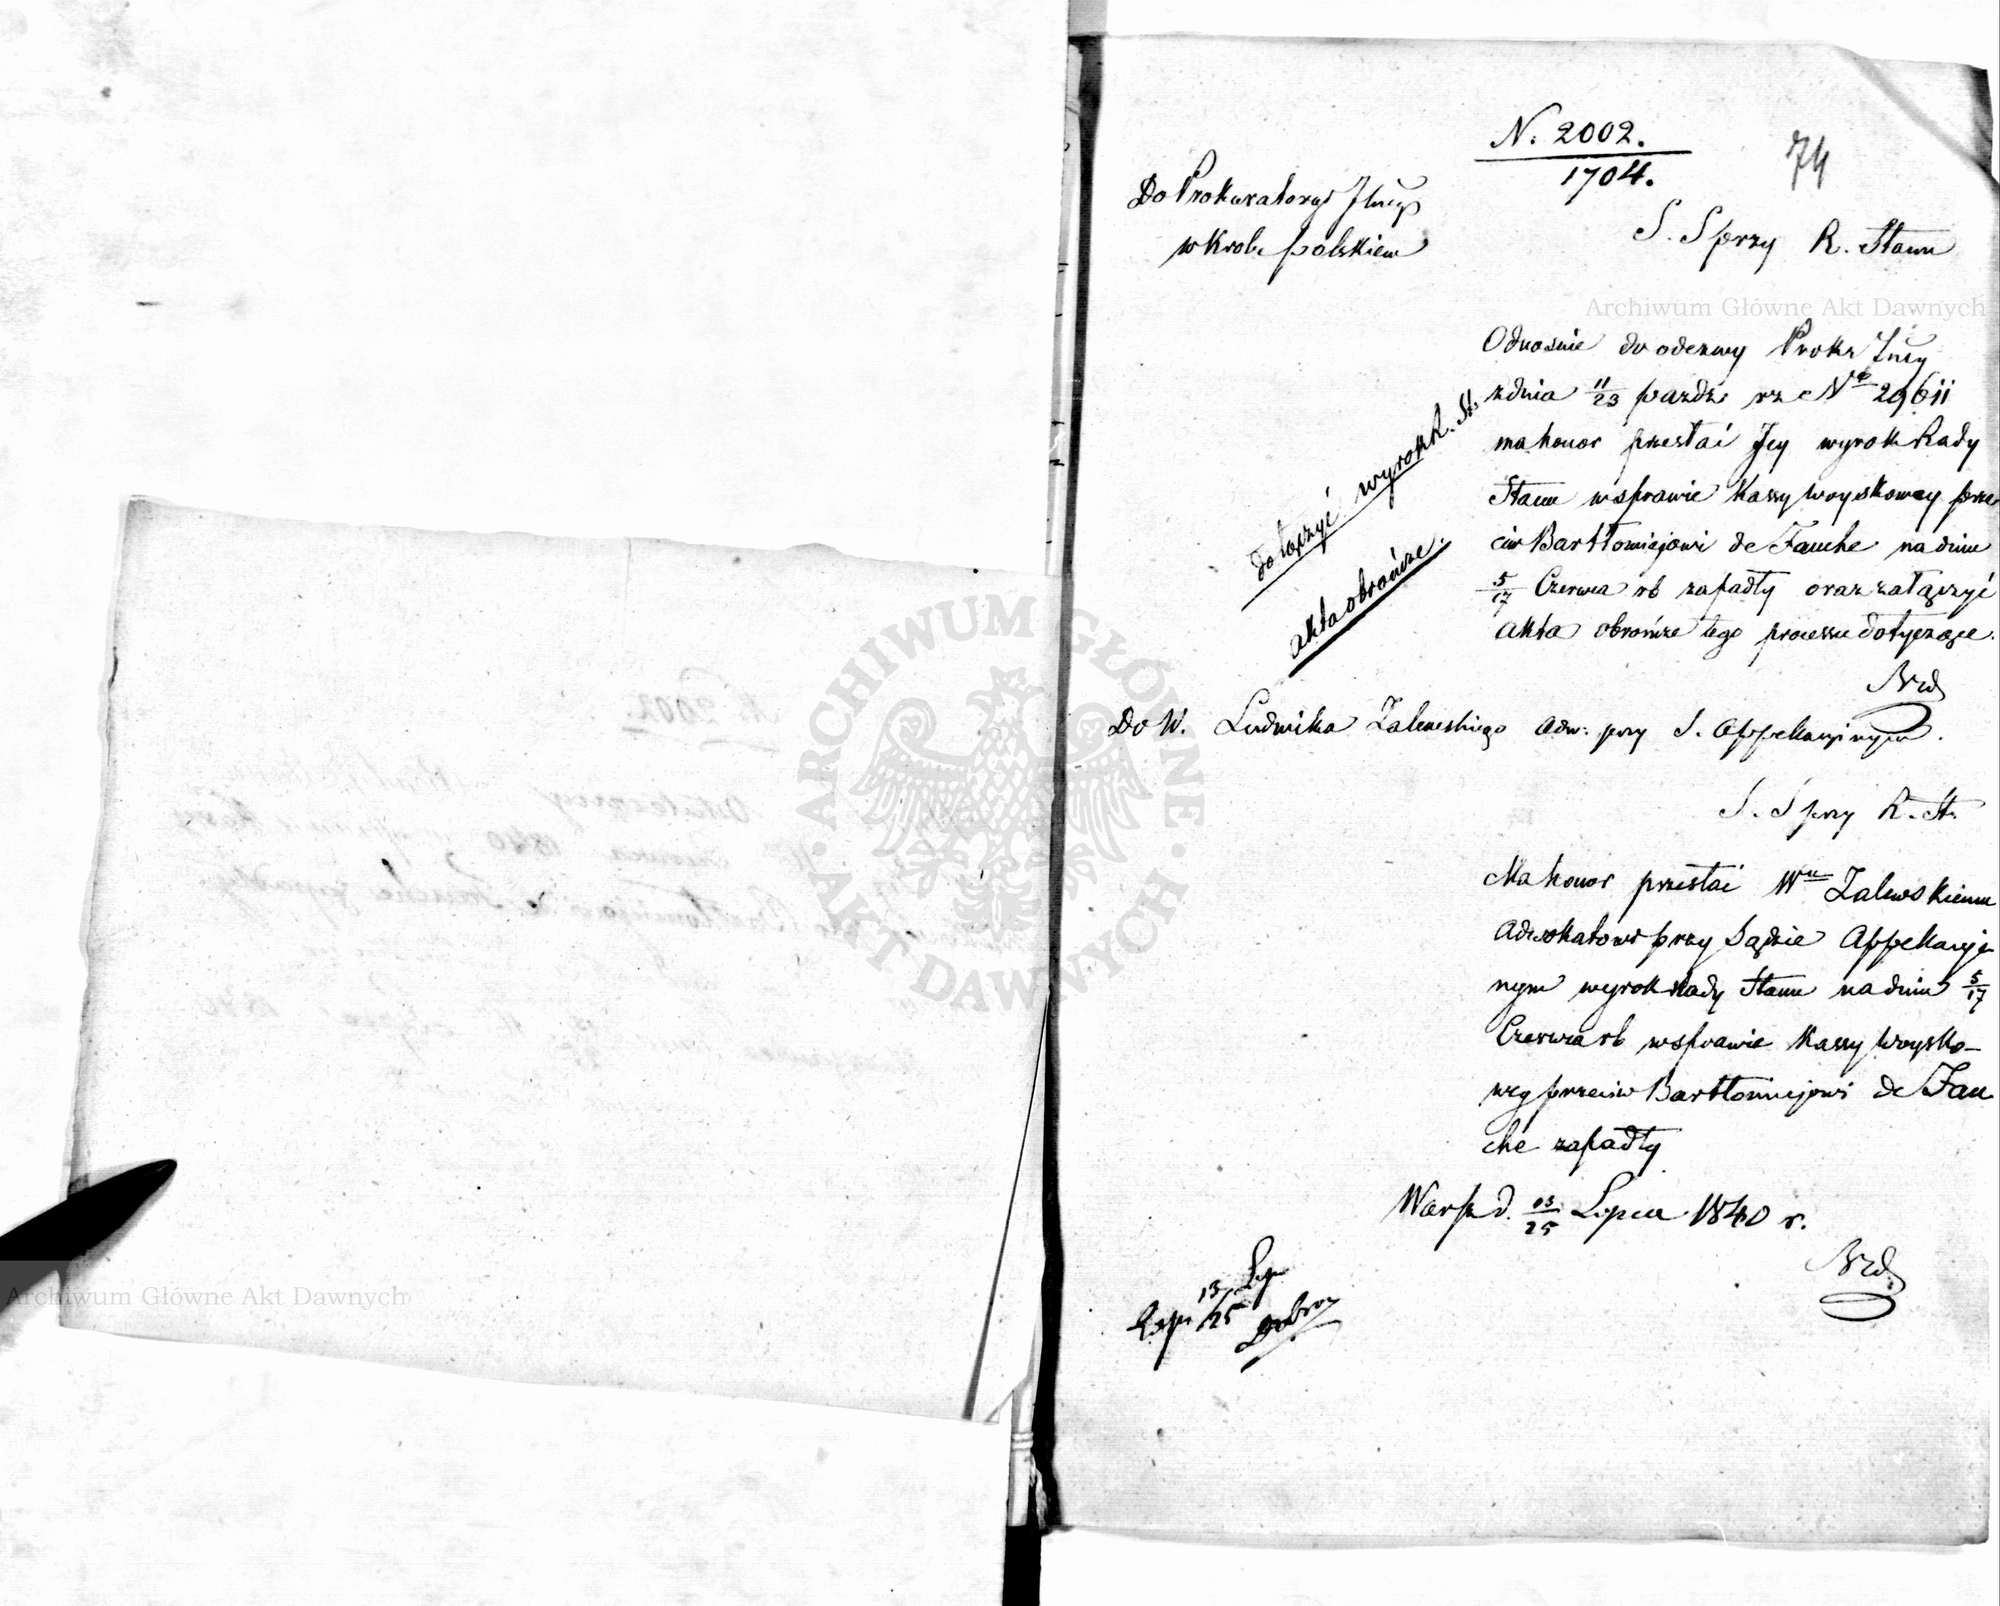 N. 2002.
1704.
74
Do Prokuratoryi
w Król. polskiem
S. S przy R. Stanu
Archiwum Główne Akt Dawnych
Odnośnie do odezwy Prokr
z dnia 11/23 paźdz. rz No 29611
ma honor przesłać Jey wyrok Rady
Stanu w sprawie Kassy woyskowey prze
ciw Bartłomiejowi de Fauche na dniu
5/17 Czerwca rb zapadły oraz załączyć
akta obrończe tego processu dotyczące.
dołączyć wyrok R. St.
akta obrończe.
Do W. Ludwika Zalewskiego adw: przy S. Appellacyinym.
S. S przy R. St.
Ma honor przesłać Wu Zalewskiemu
Adwokatowi przy Sądzie Appellacyi
nym wyrok Rady Stanu na dniu 5/17
Czerwca rb w sprawie Kassy woysko-
wey przeciw Bartłomiejowi de Fau
che zapadły
Warsz d. 13/25 Lipca 1840 r.
13/25 Lip
ARCHIWUM GŁÓWNE AKT DAWNYCH
N. 2002.
Archiwum Główne Akt Dawnych